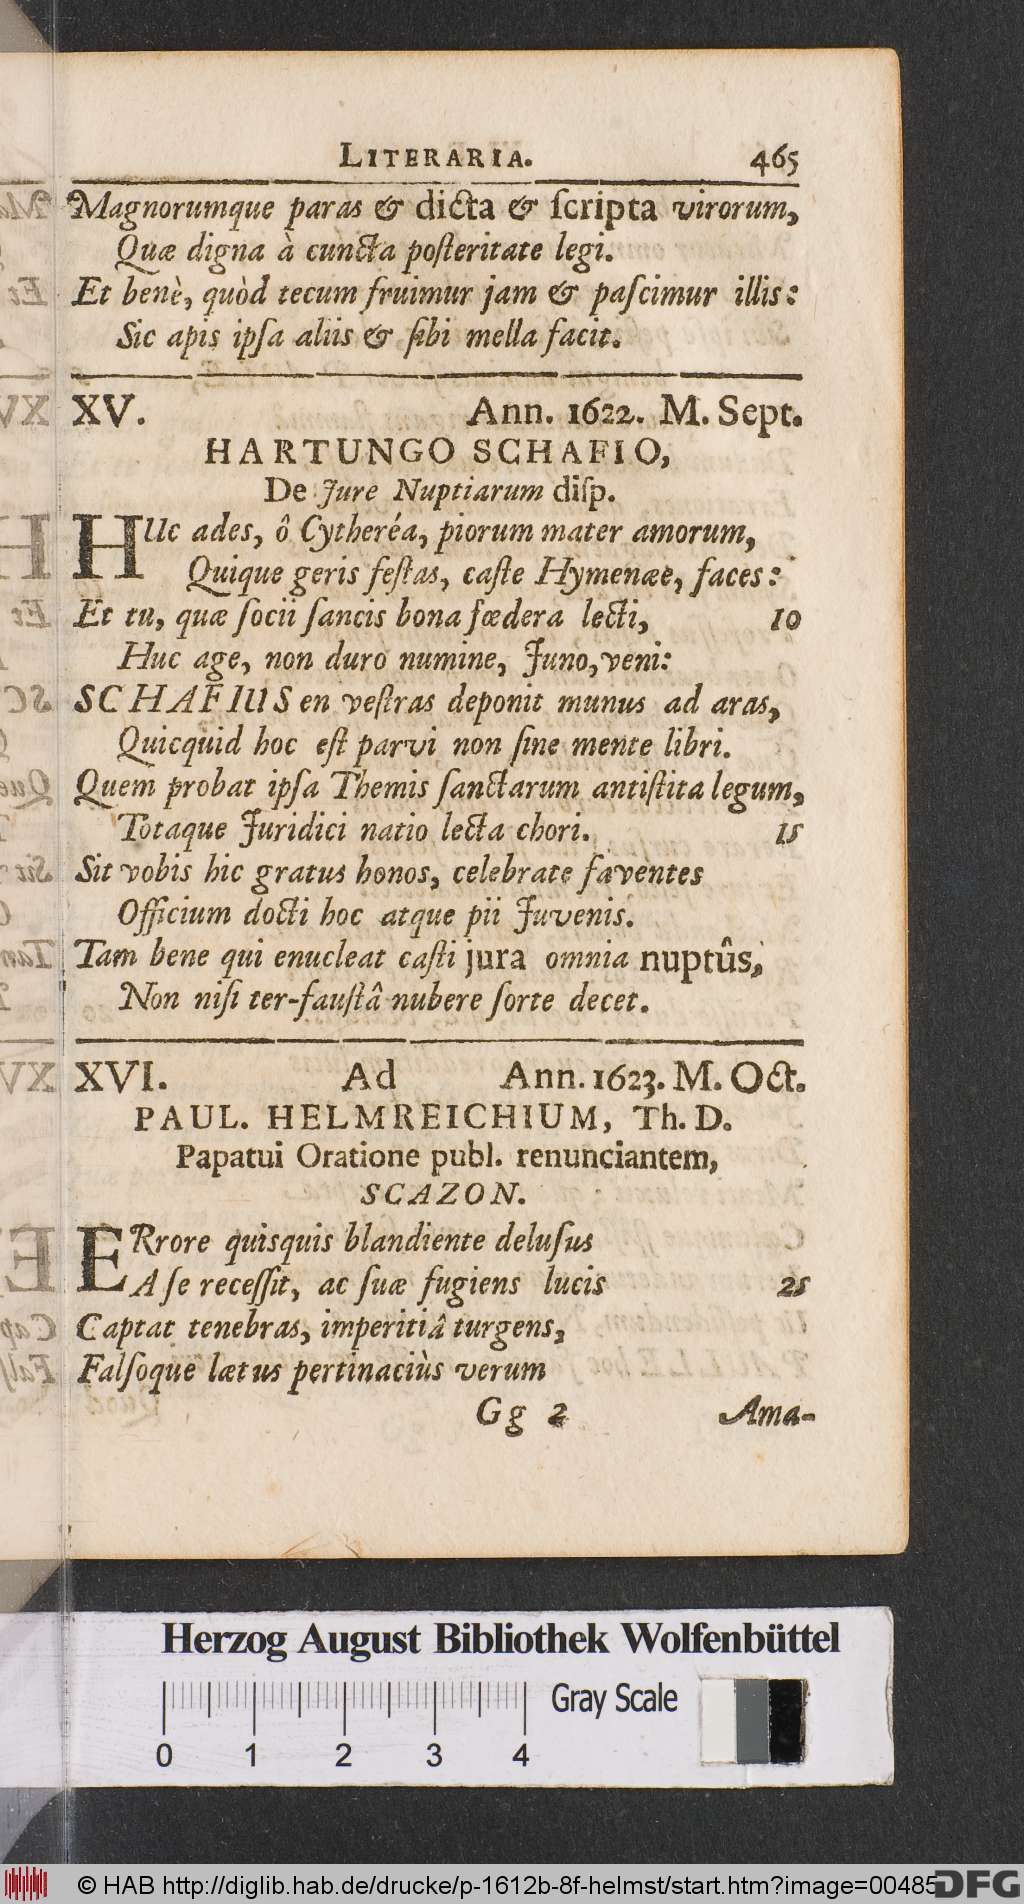 LITERARIA. 465
Magnorumque paras & dicta & ſcripta virorum,
Quæ digna à cuncta poſteritate legi.
Et benè, quòd tecum fruimur jam & paſcimur illis:
Sic apis ipſa aliis & ſibi mella facit.
XV. Ann. 1622. M. Sept.
HARTUNGO SCHAFIO,
De Jure Nuptiarum diſp.
HUc ades, ô Cytheréa, piorum mater amorum,
Quique geris feſtas, caſte Hymenæe, faces:
Et tu, quæ ſocii ſancis bona fœdera lecti, 10
Huc age, non duro numine, Juno, veni:
SCHAFIUS en veſtras deponit munus ad aras,
Quicquid hoc eſt parvi non ſine mente libri.
Quem probat ipſa Themis ſanctarum antiſtita legum,
Totaque Juridici natio lecta chori. 15
Sit vobis hic gratus honos, celebrate faventes
Officium docti hoc atque pii Juvenis.
Tam bene qui enucleat caſti jura omnia nuptûs,
Non niſi ter-fauſtâ nubere ſorte decet.
XVI. Ad Ann. 1623. M. Oct.
PAUL. HELMREICHIUM, Th. D.
Papatui Oratione publ. renunciantem,
SCAZON.
ERrore quisquis blandiente deluſus
A ſe receſſit, ac ſuæ fugiens lucis 25
Captat tenebras, imperitiâ turgens,
Falſoque lætus pertinaciùs verum
Gg 2 Ama-
Herzog August Bibliothek Wolfenbüttel
Gray Scale
0 1 2 3 4
© HAB http://diglib.hab.de/drucke/p-1612b-8f-helmst/start.htm?image=00485
DFG